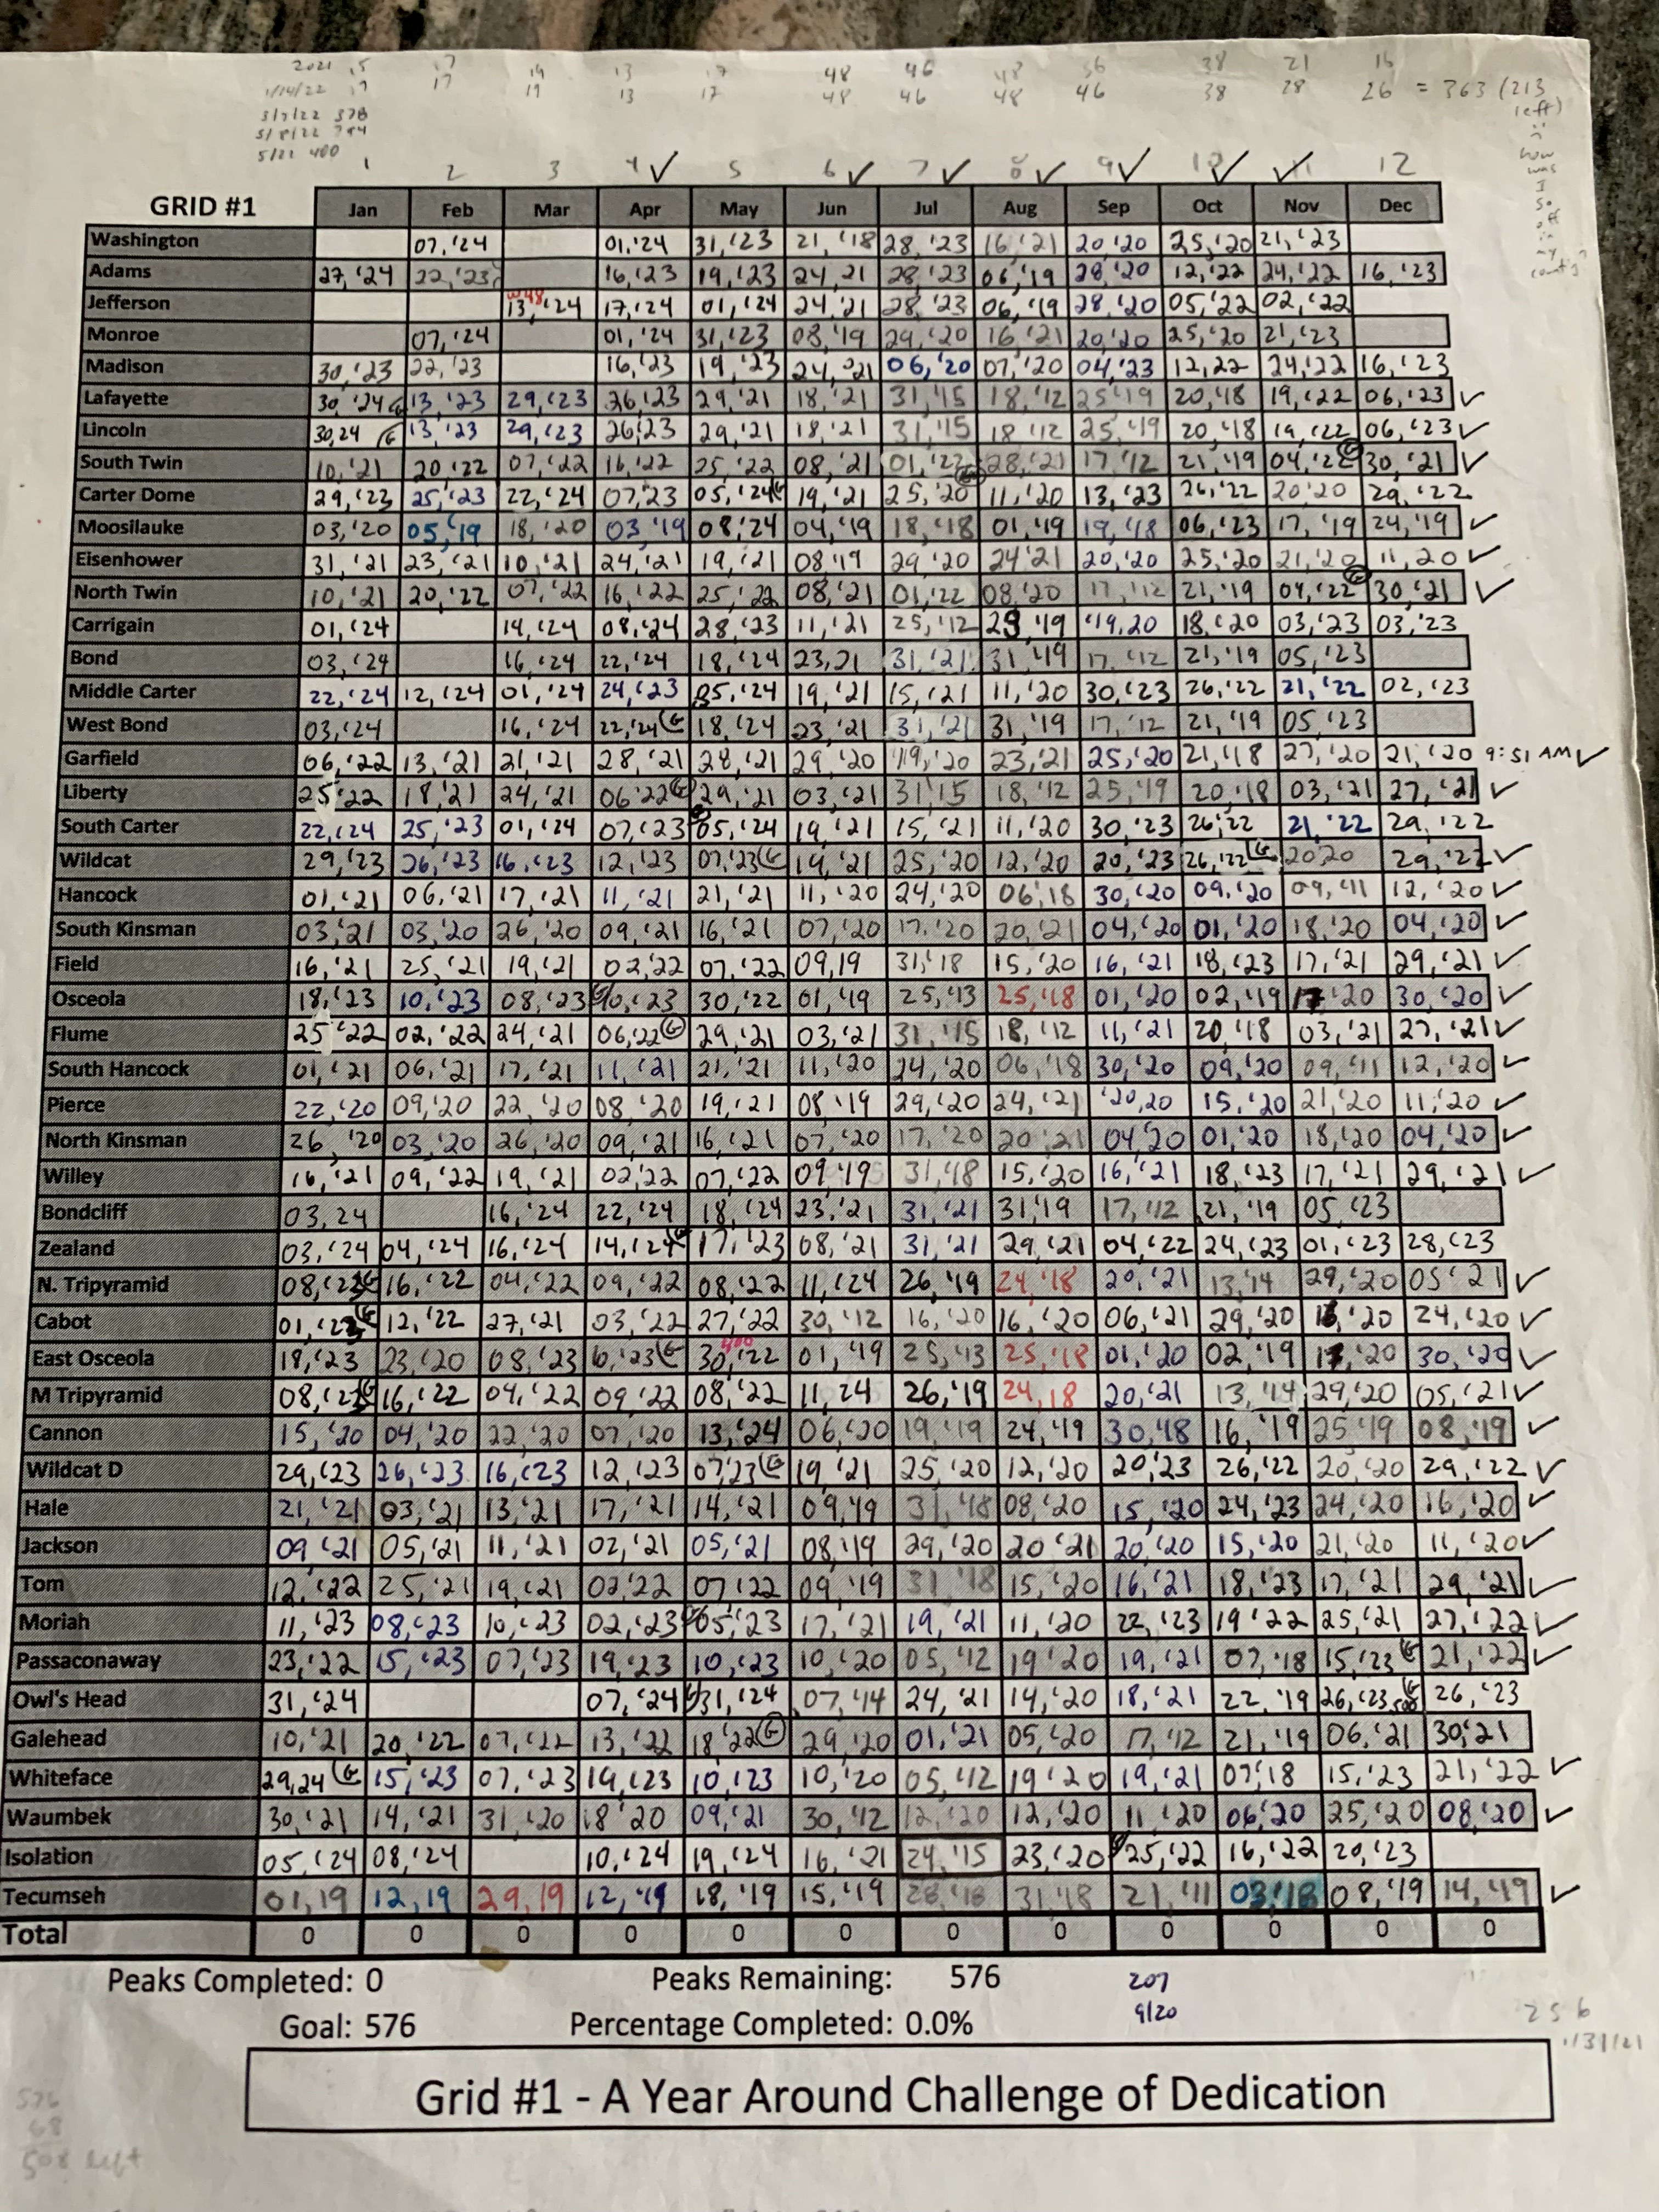 2021 15 17 19 13 17 48 46 48 36 38 21 16
1/14/22 17 17 19 13 17 48 46 48 46 38 28 26 = 363 (213 left)
3/7/22 378
5/8/22 394
5/22 400
how was I so off in my count?
1 2 3 4 ✓ 5 6 ✓ 7 ✓ 8 ✓ 9 ✓ 10 ✓ 11 ✓ 12
GRID #1 Jan Feb Mar Apr May Jun Jul Aug Sep Oct Nov Dec
Washington 07,'24 01,'24 31,'23 21,'18 28,'23 16,'21 20,'20 25,'20 21,'23
Adams 27,'24 22,'23 16,'23 19,'23 24,21 28,'23 06,'19 28,'20 12,'22 24,'22 16,'23
Jefferson W48 13,'24 17,'24 01,'24 24,'21 28,'23 06,'19 28,'20 05,'22 02,'22
Monroe 07,'24 01,'24 31,'23 08,'19 29,'20 16,'21 20,'20 25,'20 21,'23
Madison 30,'23 22,'23 16,'23 19,'23 24,'21 06,'20 07,'20 04,'23 12,22 24,'22 16,'23
Lafayette 30,'24 G 13,'23 29,'23 26,'23 29,'21 18,'21 31,'15 18,'12 25'19 20,'18 19,'22 06,'23 ✓
Lincoln 30,24 G 13,'23 29,'23 26'23 29,'21 18,'21 31,'15 18'12 25,'19 20,'18 19,'22 06,'23 ✓
South Twin 10,'21 20,'22 07,'22 16,'22 25,'22 08,'21 01,'22 G 28,'21 17,'12 21,'19 04,'22 G 30,'21 ✓
Carter Dome 29,'23 25,'23 22,'24 07,'23 05,'24 G 19,'21 25,'20 11,'20 13,'23 26,'22 20'20 29,'22
Moosilauke 03,'20 05,'19 18,'20 03,'19 08,'24 04,'19 18,'18 01,'19 19,'18 06,'23 17,'19 24,'19 ✓
Eisenhower 31,'21 23,'21 10,'21 24,'21 19,'21 08,'19 29'20 24'21 20,'20 25,'20 21,'20 11,20 ✓
North Twin 10,'21 20,'22 07,'22 16,'22 25,'22 08,'21 01,'22 08,'20 17,'12 21,'19 04,'22 G 30,'21 ✓
Carrigain 01,'24 14,'24 08,'24 28,'23 11,'21 25,'12 29'19 '19,20 18,'20 03,'23 03,'23
Bond 03,'24 16,'24 22,'24 18,'24 23,21 31,'21 31,'19 17,'12 21,'19 05,'23
Middle Carter 22,'24 12,'24 01,'24 24,'23 05,'24 19,'21 15,'21 11,'20 30,'23 26,'22 21,'22 02,'23
West Bond 03,'24 16,'24 22,'24 G 18,'24 23,'21 31,'21 31,'19 17,'12 21,'19 05,'23
Garfield 06,'22 13,'21 21,'21 28,'21 28,'21 29,'20 19,'20 23,'21 25,'20 21,'18 27,'20 21,'20 9:51 AM ✓
Liberty 25'22 18,'21 24,'21 06'22 G 29,'21 03,'21 31'15 18,'12 25,'19 20,'18 03,'21 27,'21 ✓
South Carter 22,'24 25,'23 01,'24 07,'23 05,'24 19,'21 15,'21 11,'20 30,'23 26,'22 21,'22 29,'22
Wildcat 29,'23 26,'23 16,'23 12,'23 07,'23 G 19,'21 25,'20 12,'20 20,'23 26,'22 G 20'20 29,'22 ✓
Hancock 01,'21 06,'21 17,'21 11,'21 21,'21 11,'20 24,'20 06,'18 30,'20 09,'20 09,'11 12,'20 ✓
South Kinsman 03,'21 03,'20 26,'20 09,'21 16,'21 07,'20 17,'20 20,'21 04,'20 01,'20 18,'20 04,'20 ✓
Field 16,'21 25,'21 19,'21 02,'22 07,'22 09,19 31,'18 15,'20 16,'21 18,'23 17,'21 29,'21 ✓
Osceola 18,'23 10,'23 08,'23 G 10,'23 30,'22 01,'19 25,'13 25,'18 01,'20 02,'19 17,'20 30,'20 ✓
Flume 25'22 02,'22 24,'21 06,'22 G 29,'21 03,'21 31,'15 18,'12 11,'21 20,'18 03,'21 27,'21 ✓
South Hancock 01,'21 06,'21 17,'21 11,'21 21,'21 11,'20 24,'20 06,'18 30,'20 09,'20 09,'11 12,'20 ✓
Pierce 22,'20 09,'20 22,'20 08,'20 19,'21 08'19 29,'20 24,'21 '20,20 15,'20 21,'20 11,'20 ✓
North Kinsman 26,'20 03,'20 26,'20 09,'21 16,'21 07,'20 17,'20 20'21 04,'20 01,'20 18,'20 04,'20 ✓
Willey 16,'21 09,'22 19,'21 02,'22 07,'22 09'19 31,'18 15,'20 16,'21 18,'23 17,'21 29,'21 ✓
Bondcliff 03,24 16,'24 22,'24 18,'24 23,'21 31,'21 31,'19 17,'12 21,'19 05,'23
Zealand 03,'24 04,'24 16,'24 14,'24 G 17,'23 08,'21 31,'21 29,'21 04,'22 24,'23 01,'23 28,'23
N. Tripyramid 08,'23 G 16,'22 04,'22 09,'22 08,'22 11,'24 26,'19 24,'18 20,'21 13,'14 29,'20 05'21 ✓
Cabot 01,'23 G 12,'22 27,'21 03,'22 27,'22 30,'12 16,'20 16,'20 06,'21 29,'20 13,'20 24,'20 ✓
East Osceola 18,'23 23,'20 08,'23 10,'23 G 400 30,'22 01,'19 25,'13 25,'18 01,'20 02,'19 17,'20 30,'20 ✓
M Tripyramid 08,'23 G 16,'22 04,'22 09,'22 08,'22 11,24 26,'19 24,18 20,'21 13,'14 29,'20 05,'21 ✓
Cannon 15,'20 04,'20 22,'20 07,'20 13,'24 06,'20 19,'19 24,'19 30,'18 16,'19 25'19 08,'19 ✓
Wildcat D 29,'23 26,'23 16,'23 12,'23 07,'23 G 19,'21 25,'20 12,'20 20,'23 26,'22 20,'20 29,'22 ✓
Hale 21,'21 03,'21 13,'21 17,'21 14,'21 09,'19 31,'18 08,'20 15,'20 24,'23 24,'20 16,'20 ✓
Jackson 09'21 05,'21 11,'21 02,'21 05,'21 08,'19 29,'20 20'21 20,'20 15,'20 21,'20 11,'20 ✓
Tom 12,'22 25,'21 19,'21 02,'22 07,'22 09,'19 31,'18 15,'20 16,'21 18,'23 17,'21 29,'21 ✓
Moriah 11,'23 08,'23 10,'23 02,'23 G 05,'23 17,'21 19,'21 11,'20 22,'23 19'22 25,'21 27,'22 ✓
Passaconaway 23,'22 15,'23 07,'23 19,'23 10,'23 10,'20 05,'12 19'20 19,'21 07,'18 15,'23 G 21,'22 ✓
Owl's Head 31,'24 07,'24 G 31,'24 07,'14 24,'21 14,'20 18,'21 22,'19 26,'23 G 500 26,'23
Galehead 10,'21 20,'22 07,'22 13,'22 18'22 G 29,'20 01,'21 05,'20 17,'12 21,'19 06,'21 30,'21
Whiteface 29,24 G 15,'23 07,'23 19,'23 10,'23 10,'20 05,'12 19'20 19,'21 07,'18 15,'23 21,'22 ✓
Waumbek 30,'21 14,'21 31,'20 18'20 09,'21 30,'12 12,'20 12,'20 11,'20 06,'20 25,'20 08,'20 ✓
Isolation 05,'24 08,'24 10,'24 19,'24 16,'21 24,'15 23,'20 25,'22 16,'22 20,'23
Tecumseh 01,19 12,19 29,19 12,'19 18,'19 15,'19 28,'18 31,'18 21,'11 03,'18 08,'19 14,'19 ✓
Total 0 0 0 0 0 0 0 0 0 0 0 0
Peaks Completed: 0 Peaks Remaining: 576 207
Goal: 576 Percentage Completed: 0.0% 9/20
256
1/31/21
Grid #1 - A Year Around Challenge of Dedication
576
68
508 left